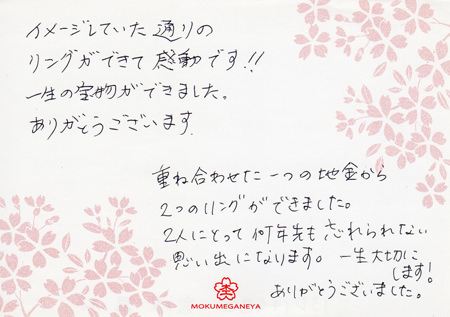 イメージしていた通りの
リングができて感動です!!
一生の宝物ができました。
ありがとうございます
重ね合わせた一つの地金から
2つのリングができました。
2人にとって何年先も忘れられない
思い出になります。一生大切に
します!
ありがとうございました。
MOKUMEGANEYA